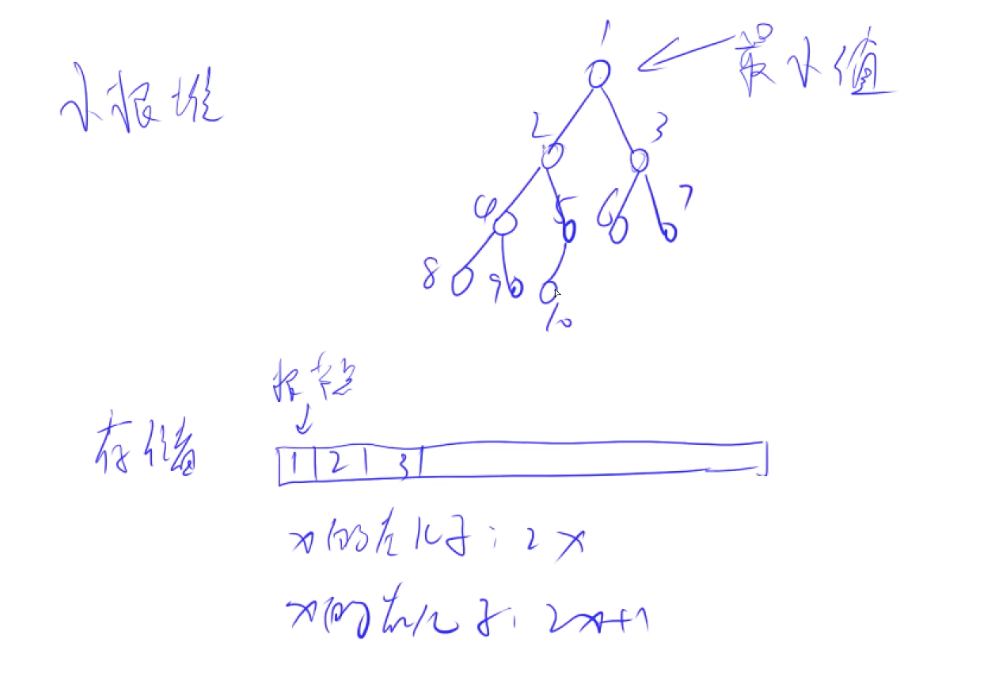 小根堆
1
最小值
2 3
4 5 6 7
8 9 10
根节点
存储
1 2 3
x的左儿子: 2x
x的右儿子: 2x+1